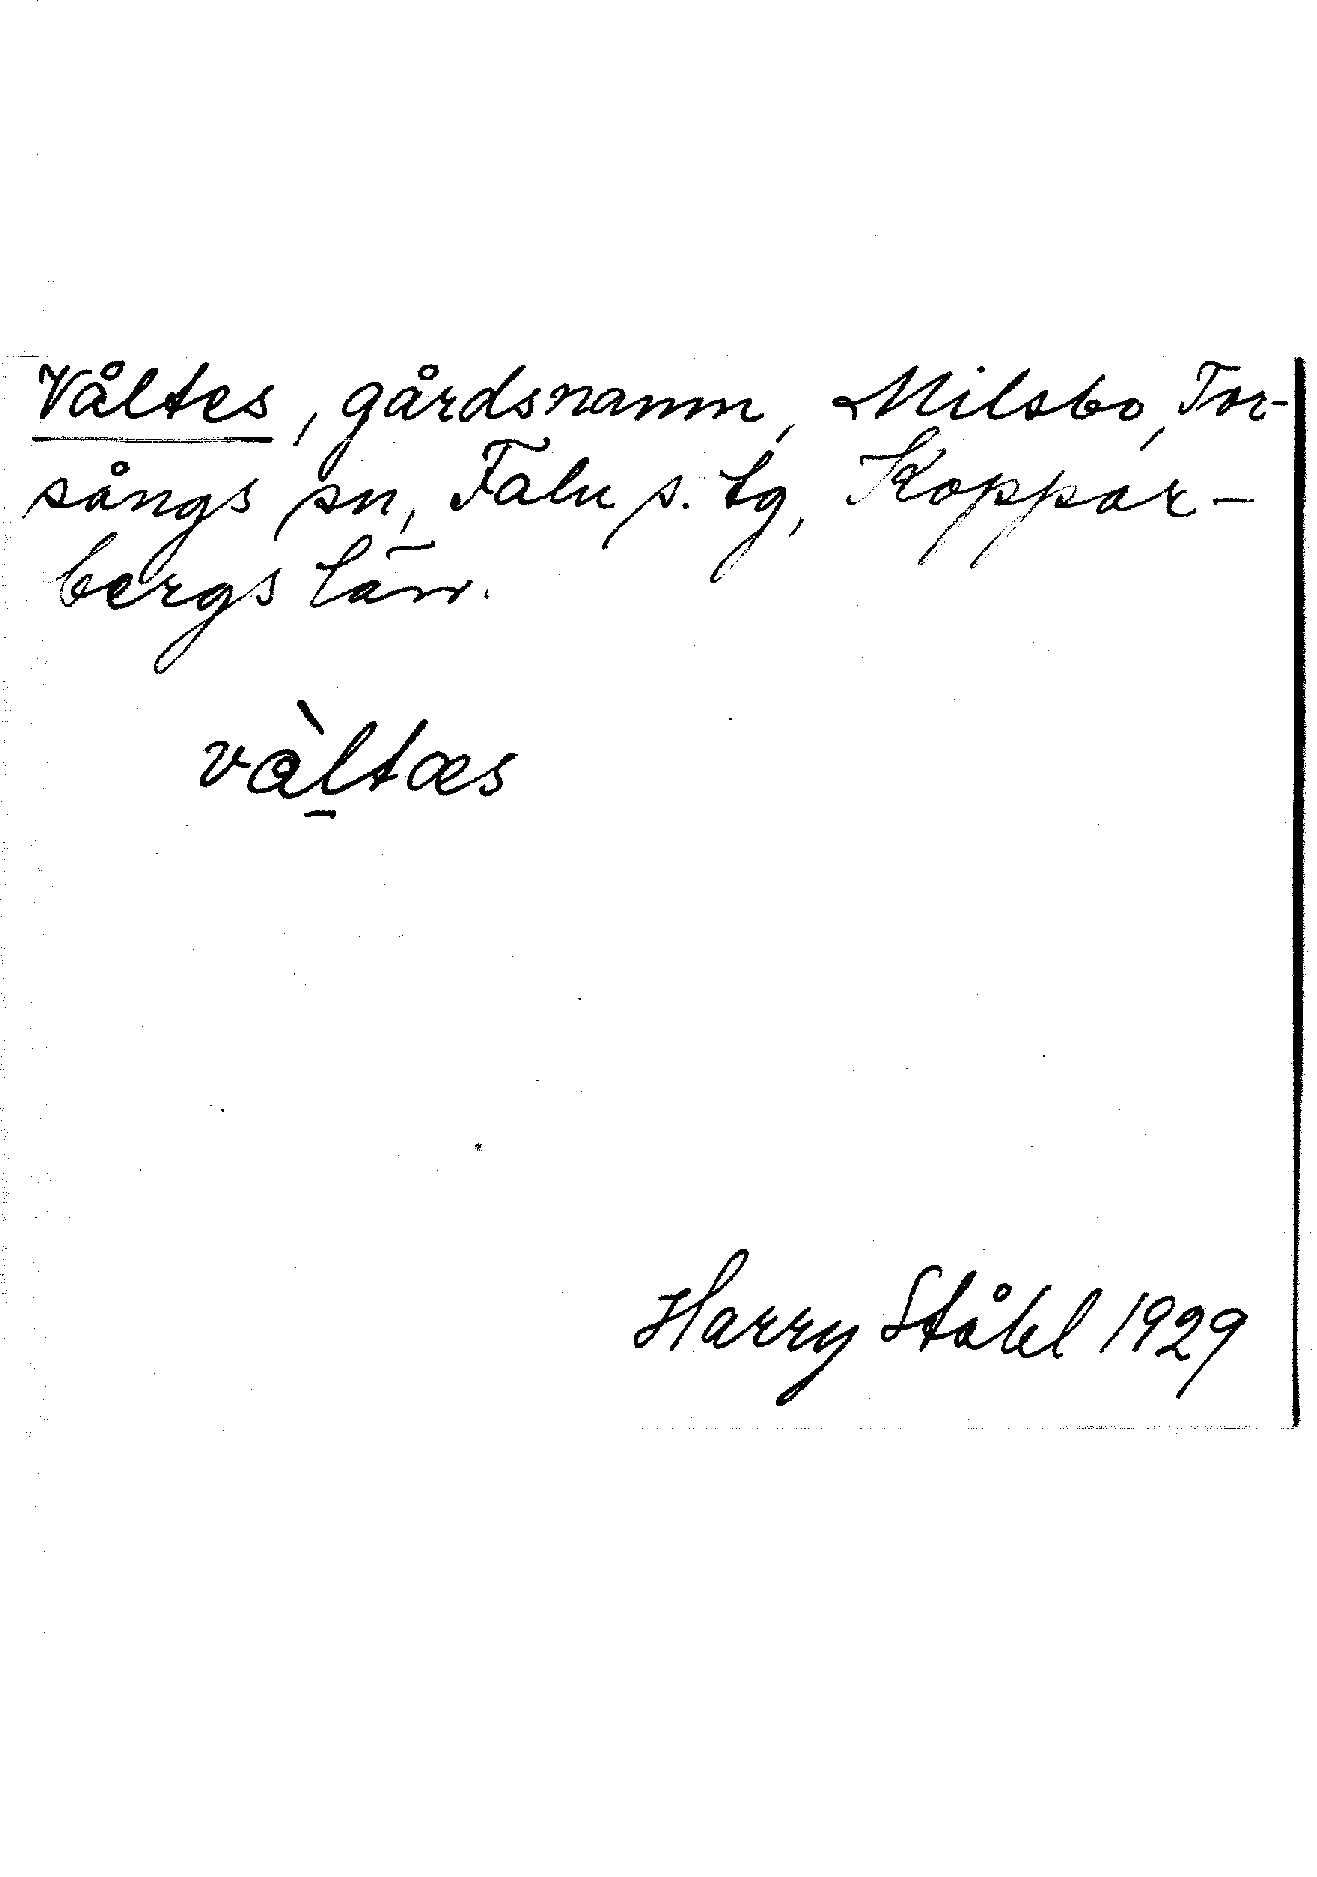 Våltes, gårdsnamn, Milsbo, Tor-
sångs sn, Falu s. tg, Koppar-
bergs län.
vàltæs
Harry Ståhl 1929